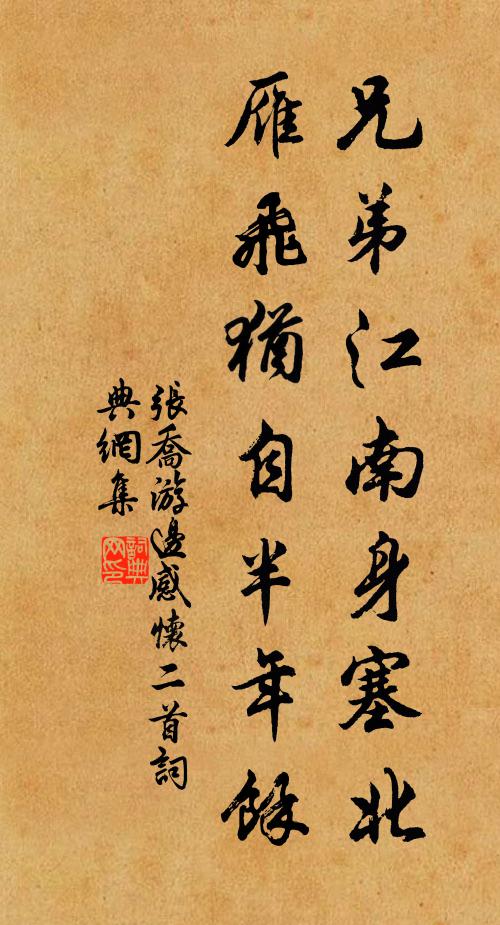 兄弟江南身塞北
雁飛猶自半年餘
張喬游邊感懷二首詞
典網集
詞典
網印